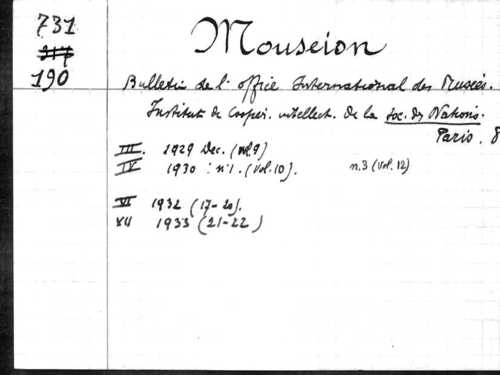 731
317
190
Mouseion
Bulletin de l'office International des Musées.
Institut de Cooper. intellect. de la Soc. des Nations.
Paris. 8
III. 1929 Dec. (vol. 9)
IV 1930 : nº1. (vol. 10). n.3 (vol. 12)
VI 1932 (17-20).
XII 1933 (21-22)